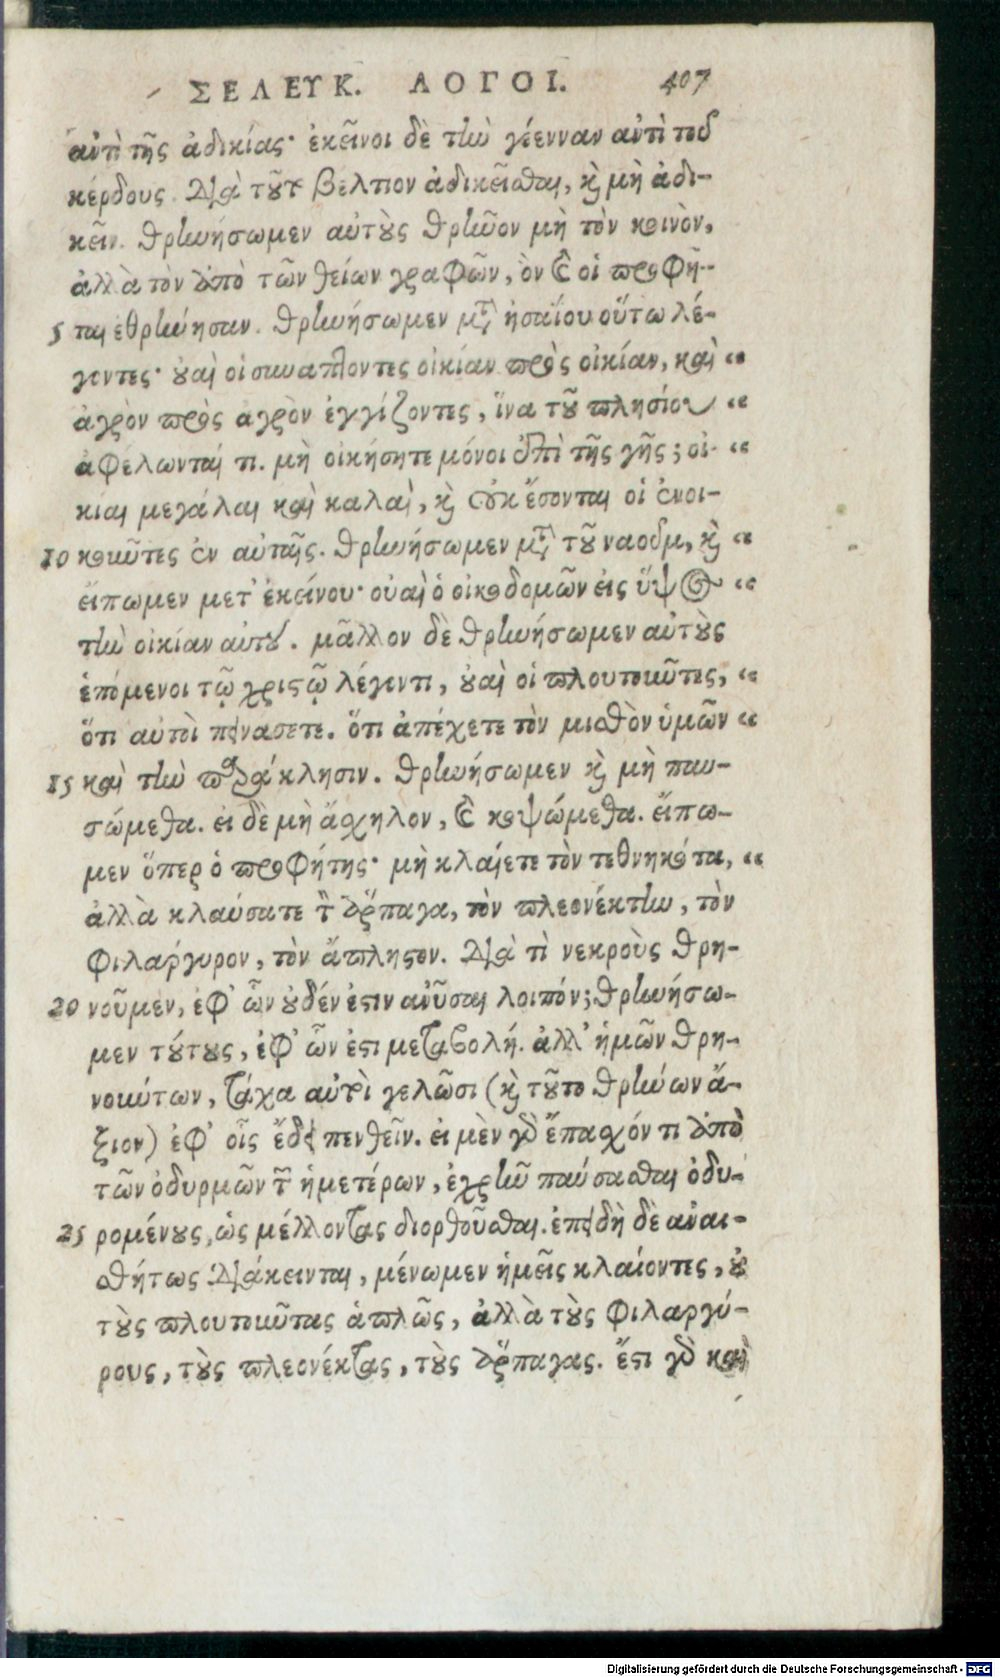 ΣΕΛΕΥΚ. ΛΟΓΟΙ. 407
ἀντὶ τῆς ἀδικίας· ἐκεῖνοι δὲ τὴν γέενναν ἀντὶ τοῦ
κέρδους. διὰ τοῦτο βέλτιον ἀδικεῖσθαι, καὶ μὴ ἀδι-
κεῖν. θρηνήσωμεν αὐτοὺς θρῆνον μὴ τὸν κοινὸν,
ἀλλὰ τὸν ἀπὸ τῶν θείων γραφῶν, ὃν καὶ οἱ προφῆ-
5 ται ἐθρήνησαν. θρηνήσωμεν μετὰ ἡσαΐου οὕτω λέ-
γοντες· οὐαὶ οἱ συναπτοντες οἰκίαν πρὸς οἰκίαν, καὶ “
ἀγρὸν πρὸς αγρὸν ἐγγίζοντες, ἵνα τοῦ πλησίον “
ἀφέλωνταί τι. μὴ οἰκήσητε μόνοι ἐπὶ τῆς γῆς; οἰ- “
κίαι μεγάλαι καὶ καλαὶ, καὶ οὐκ ἔσονται οἱ ἐνοι-
10 κοιῶτες ἐν αὐταῖς. θρηνήσωμεν μετὰ τοῦ ναοὺμ, καὶ “
εἴπωμεν μετ' ἐκείνου· οὐαὶ ὁ οἰκοδομῶν εἰς ὕψος “
τὴν οἰκίαν αὐτοῦ. μᾶλλον δὲ θρηνήσωμεν αὐτοὺς
ἑπόμενοι τῷ χριστῷ λέγοντι, οὐαὶ οἱ πλουτοιῶτες, “
ὅτι αὐτοὶ πεινάσετε. ὅτι ἀπέχετε τὸν μισθὸν ὑμῶν “
15 καὶ τὴν παράκλησιν. θρηνήσωμεν καὶ μὴ παυ-
σώμεθα. εἰ δὲ μὴ ἄσχημον, καὶ κοψώμεθα. εἴπω-
μεν ὅπερ ὁ προφήτης· μὴ κλαίετε τὸν τεθνηκότα, “
ἀλλὰ κλαύσατε τὸν ἅρπαγα, τὸν πλεονέκτην, τὸν
φιλαργυρον, τὸν ἄπληστον. διὰ τί νεκροὺς θρη-
20 νοῦμεν, ἐφ' ὧν οὐδέν ἐστιν ἀνῦσαι λοιπόν; θρηνήσω-
μεν τούτους, ἐφ' ὧν ἐστι μεταβολή. ἀλλ' ἡμῶν θρη-
νοιύτων, τάχα αὐτοὶ γελῶσι (καὶ τοῦτο θρήνων ἄ-
ξιον) ἐφ' οἷς ἔδει πενθεῖν. εἰ μὲν γὰρ ἔπασχόν τι ἀπὸ
τῶν ὀδυρμῶν τῶν ἡμετέρων, ἐχρῆν παύσασθαι ὀδυ-
25 ρομένους, ὡς μέλλοντας διορθοῦσθαι. ἐπειδὴ δὲ ἀναι-
σθήτως διάκεινται, μένωμεν ἡμεῖς κλαίοντες, οὐ
τοὺς πλουτοιῶτας ἁπλῶς, ἀλλὰ τοὺς φιλαργύ-
ρους, τοὺς πλεονέκτας, τοὺς ἅρπαγας. ἔστι γὰρ καὶ
Digitalisierung gefördert durch die Deutsche Forschungsgemeinschaft - DFG